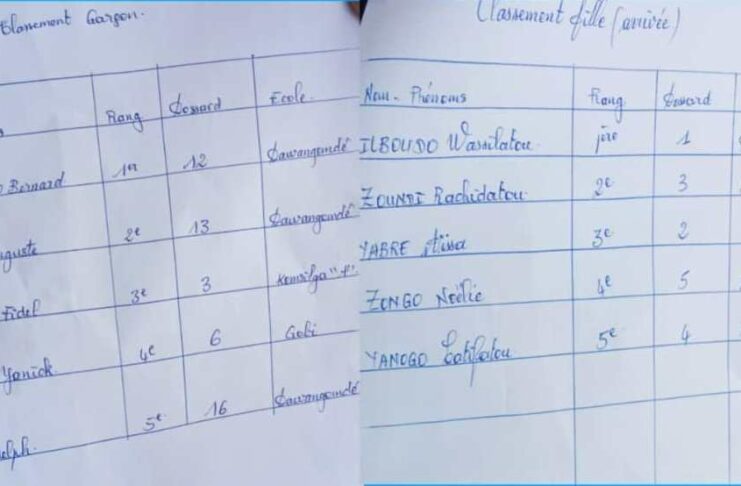 Classement Garçon.
Rang Dossard Ecole.
Bernard 1er 12 Dawangomdé
guste 2e 13 Dawangomdé
Fidel 3e 3 Komsilga "1"
Yanick 4e 6 Gobi
olph. 5e 16 Dawangomdé
Classement fille (arrivée)
Nom - Prénoms Rang Dossard
ILBOUDO Wassilatou 1ère 1
ZOUNDI Rachidatou 2e 3
YABRE Aïssa 3e 2
ZONGO Noëlie 4e 5
YANOGO Latifatou 5e 4